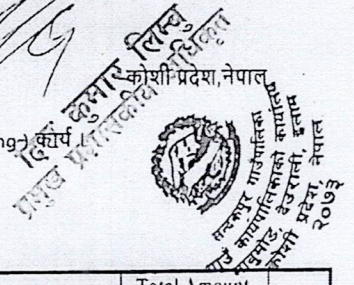 कुमार लिम्बु
प्रमुख प्रशासकीय अधिकृत
कोशी प्रदेश,नेपाल
ng-) कार्य
सन्दकपुर गाउँपालिका
गाउँ कार्यपालिकाको कार्यालय
देउराली, इलाम
कोशी प्रदेश, नेपाल
२०७३
Total Amount